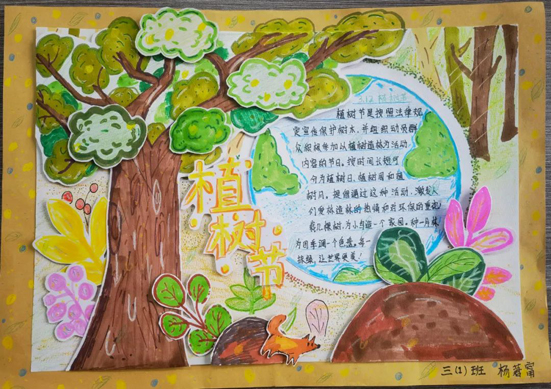 植树节
3.12植树节
植树节是按照法律规
定宣传保护树木,并组织动员群
众积极参加以植树造林为活动
内容的节日。按时间长短可
分为植树日、植树周和植
树月。提倡通过这种活动,激发人
们爱林造林的热情和对环保的重视
栽几棵树,为小鸟造一个家园。种一片林,
为四季添一个色彩。每一
抹绿,让世界更美!
三(1)班